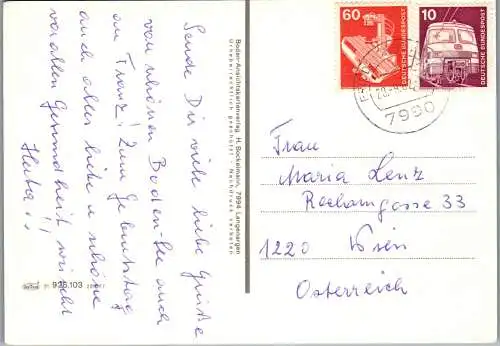 Sende Dir viele liebe Grüße
vom schönen Boden-See auch
an Franz! Zum Geburtstag
auch alles liebe u schöne
vor allem Gesundheit wünscht
Bodan-Ansichtskartenverlag, H. Bockelmann, 7994 Langenargen
Urheberrechtlich geschützt - Nachdruck verboten
925.103
60
DEUTSCHE BUNDESPOST
10
DEUTSCHE BUNDESPOST
7990
Frau
Maria Lenz
Reclamgasse 33
1220 Wien
Österreich